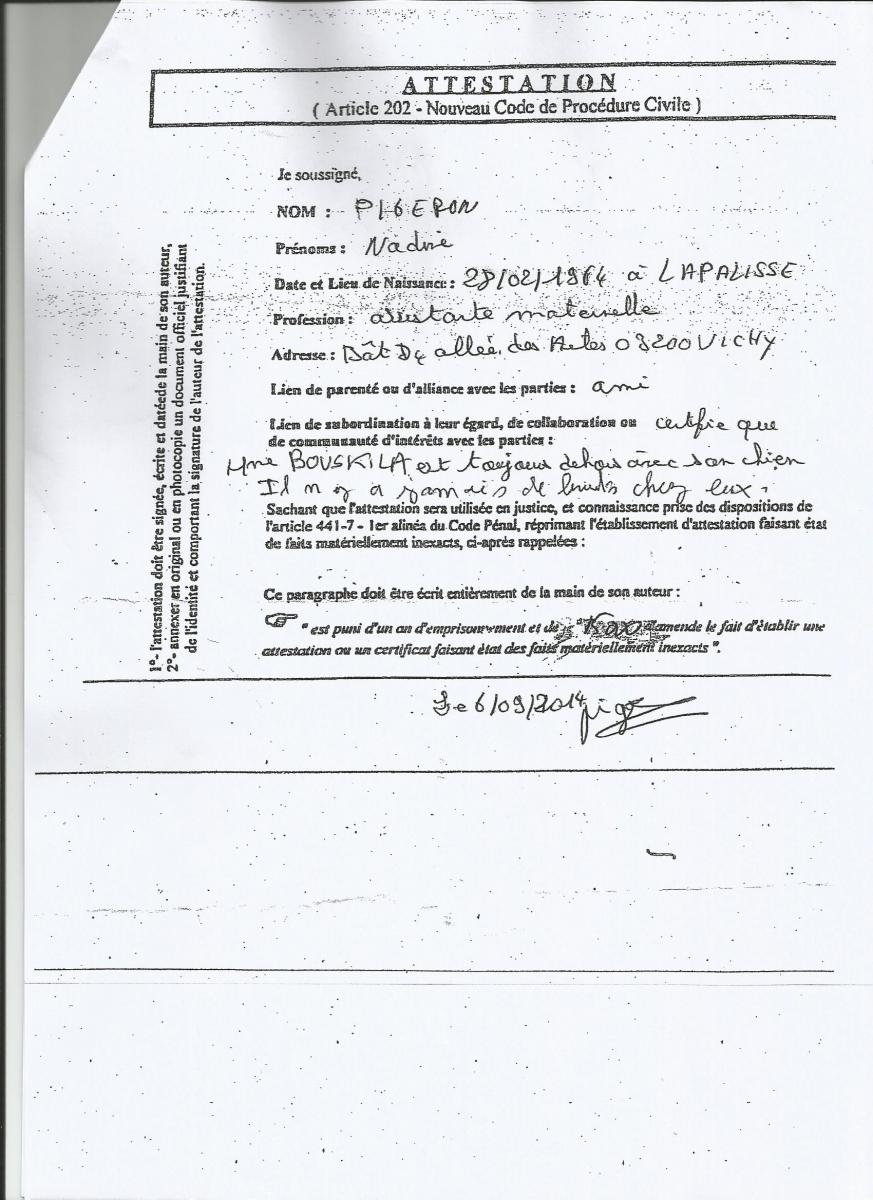 ATTESTATION
( Article 202 - Nouveau Code de Procédure Civile )
Je soussigné,
NOM : PIGERON
Prénoms : Nadine
Date et Lieu de Naissance : 28/02/1964 à LAPALISSE
Profession : assistante maternelle
Adresse : Bât D4 allée des Ailes 03200 VICHY
Lien de parenté ou d'alliance avec les parties : ami
Lien de subordination à leur égard, de collaboration ou certifie que
de communauté d'intérêts avec les parties :
Mme BOUSKILA est toujours dehors avec son chien
Il n y a jamais de bruits chez eux.
Sachant que l'attestation sera utilisée en justice, et connaissance prise des dispositions de
l'article 441-7 - 1er alinéa du Code Pénal, réprimant l'établissement d'attestation faisant état
de faits matériellement inexacts, ci-après rappelées :
Ce paragraphe doit être écrit entièrement de la main de son auteur :
"est puni d'un an d'emprisonnement et de d'amende le fait d'établir une
attestation ou un certificat faisant état des faits matériellement inexacts ".
Le 6/09/2014
1°- l'attestation doit être signée, écrite et datéede la main de son auteur,
2°- annexer en original ou en photocopie un document officiel justifiant
de l'identité et comportant la signature de l'auteur de l'attestation.